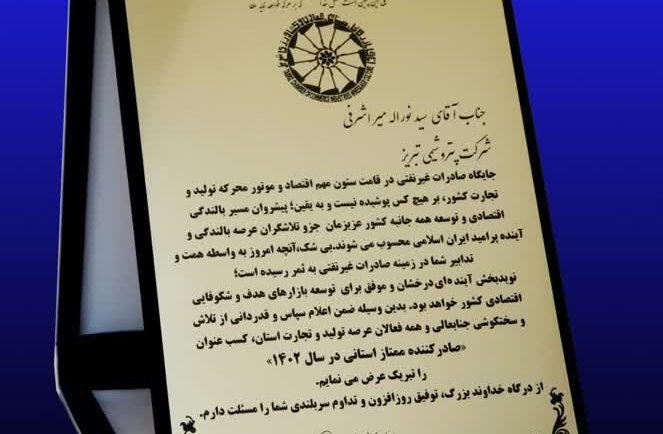 جناب آقای سید نوراله میراشرفی
شرکت پتروشیمی تبریز
جایگاه صادرات غیرنفتی در قامت ستون مهم اقتصاد و موتور محرکه تولید و
تجارت کشور، بر هیچ کس پوشیده نیست و به یقین؛ پیشروان مسیر بالندگی
اقتصادی و توسعه همه جانبه کشور عزیزمان جزو تلاشگران عرصه بالندگی و
آینده پرامید ایران اسلامی محسوب می شوند،بی شک،آنچه امروز به واسطه همت و
تدابیر شما در زمینه صادرات غیرنفتی به ثمر رسیده است؛
نویدبخش آینده‌ای درخشان و موفق برای توسعه بازارهای هدف و شکوفایی
اقتصادی کشور خواهد بود. بدین وسیله ضمن اعلام سپاس و قدردانی از تلاش
و سختکوشی جنابعالی و همه فعالان عرصه تولید و تجارت استان، کسب عنوان
«صادرکننده ممتاز استانی در سال ۱۴۰۲»
را تبریک عرض می نمایم.
از درگاه خداوند بزرگ، توفیق روزافزون و تداوم سربلندی شما را مسئلت دارم.